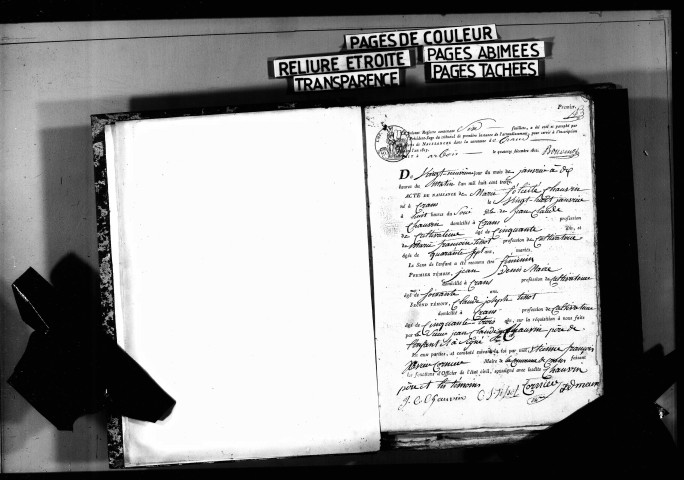 PAGES DE COULEUR
RELIURE ETROITE
PAGES ABIMEES
TRANSPARENCE
PAGES TACHEES
Premier.
Registre contenant Six feuillets, a été coté et paraphé par
Président-Juge du tribunal de première instance de l'arrondissement, pour servir à l'inscription
de NAISSANCE dans la commune de Crans
l'an 1813.
à arbois le quatorze décembre 1812.
Du Vingt neuvième jour du mois de janvier à dix
heures du matin l'an mil huit cent treize.
ACTE DE NAISSANCE de Marie félicité Chauvin
né à Crans le Vingt huit janvier
à huit heures du Soir fille de jean Claude
Chauvin domicilié à Crans profession
de Cultivateur âgé de Cinquante ans, et
de Marie françoise tissot profession de Cultivateur
âgée de quarante sept ans, mariés.
Le Sexe de l'enfant a été reconnu être féminin
PREMIER TÉMOIN, jean Denis Marie
domicilié à Crans profession de Cultivateur
âgé de Soixante ans.
SECOND TÉMOIN, Claude joseph tissot
domicilié à Crans profession de Cultivateur
âgé de Cinquante trois ans, sur la réquisition à nous faite
par le Sieur jean Claude Chauvin père de
l'enfant et a signé
et aux parties, et constaté suivant la loi par moi, Etienne françois
Maire de la Commune de faisant
les fonctions d'Officier de l'état civil, soussigné avec lesdits Chauvin
père et les témoins
J. C. Chauvin C. J. tissot